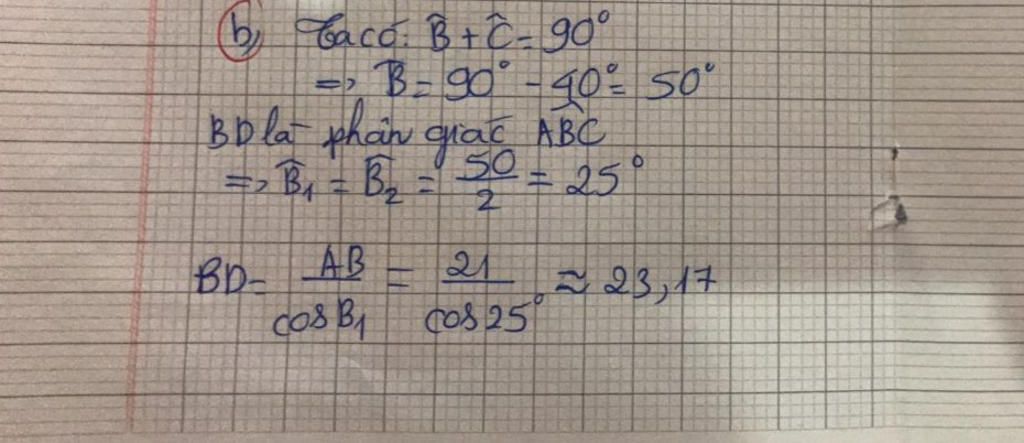 b, Ta có: B̂ + Ĉ = 90°
=> B̂ = 90° - 40° = 50°
BD là phân giác ABC
=> B̂₁ = B̂₂ = 50/2 = 25°
BD = AB/cosB₁ = 21/cos25° ≈ 23,17